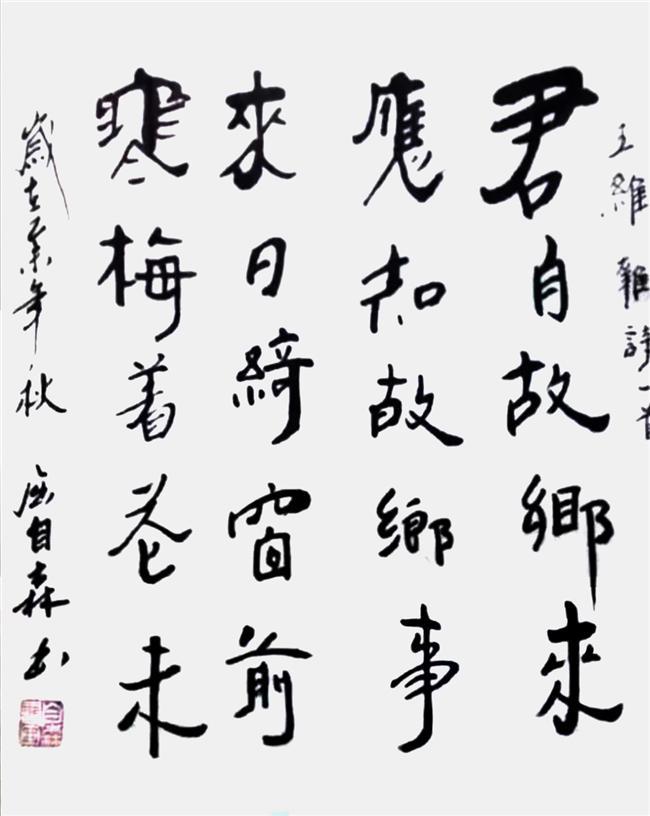 王維 雜詩一首
君自故鄉來
應知故鄉事
來日綺窗前
寒梅着花未
歲在年秋 自森书